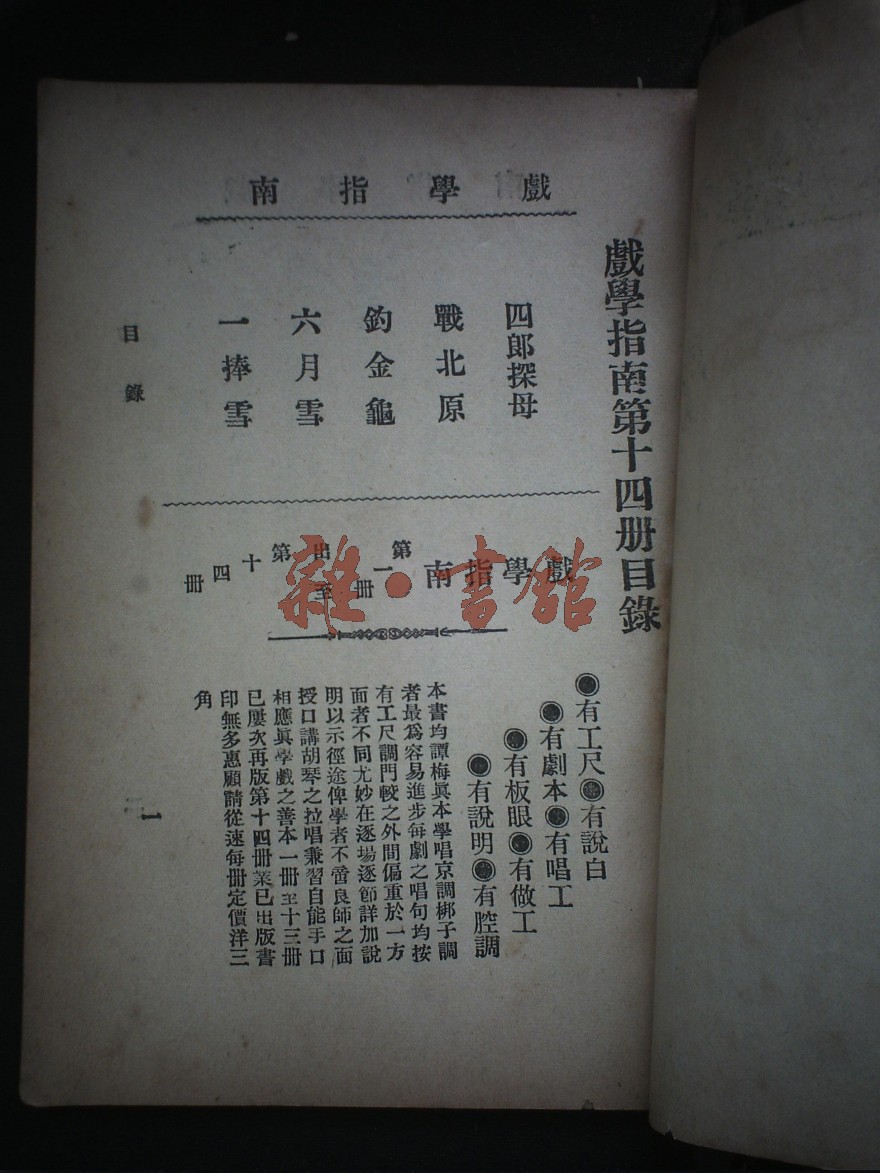 戲學指南
戲學指南第十四册目錄
四郎探母
戰北原
釣金龜
六月雪
一捧雪
目錄
戲學指南
第一册
出至
第十四册
●有工尺●有說白
●有劇本●有唱工
●有板眼●有做工
●有說明●有腔調
本書均譚梅眞本學唱京調梆子調
者最爲容易進步每劇之唱句均按
有工尺調門較之外間偏重於一方
面者不同尤妙在逐場逐節詳加說
明以示徑途俾學者不啻良師之面
授口講胡琴之拉唱兼習自能手口
相應眞學戲之善本一册至十三册
已屢次再版第十四册業已出版書
印無多惠顧請從速每册定價洋三
角
一
雜·書館